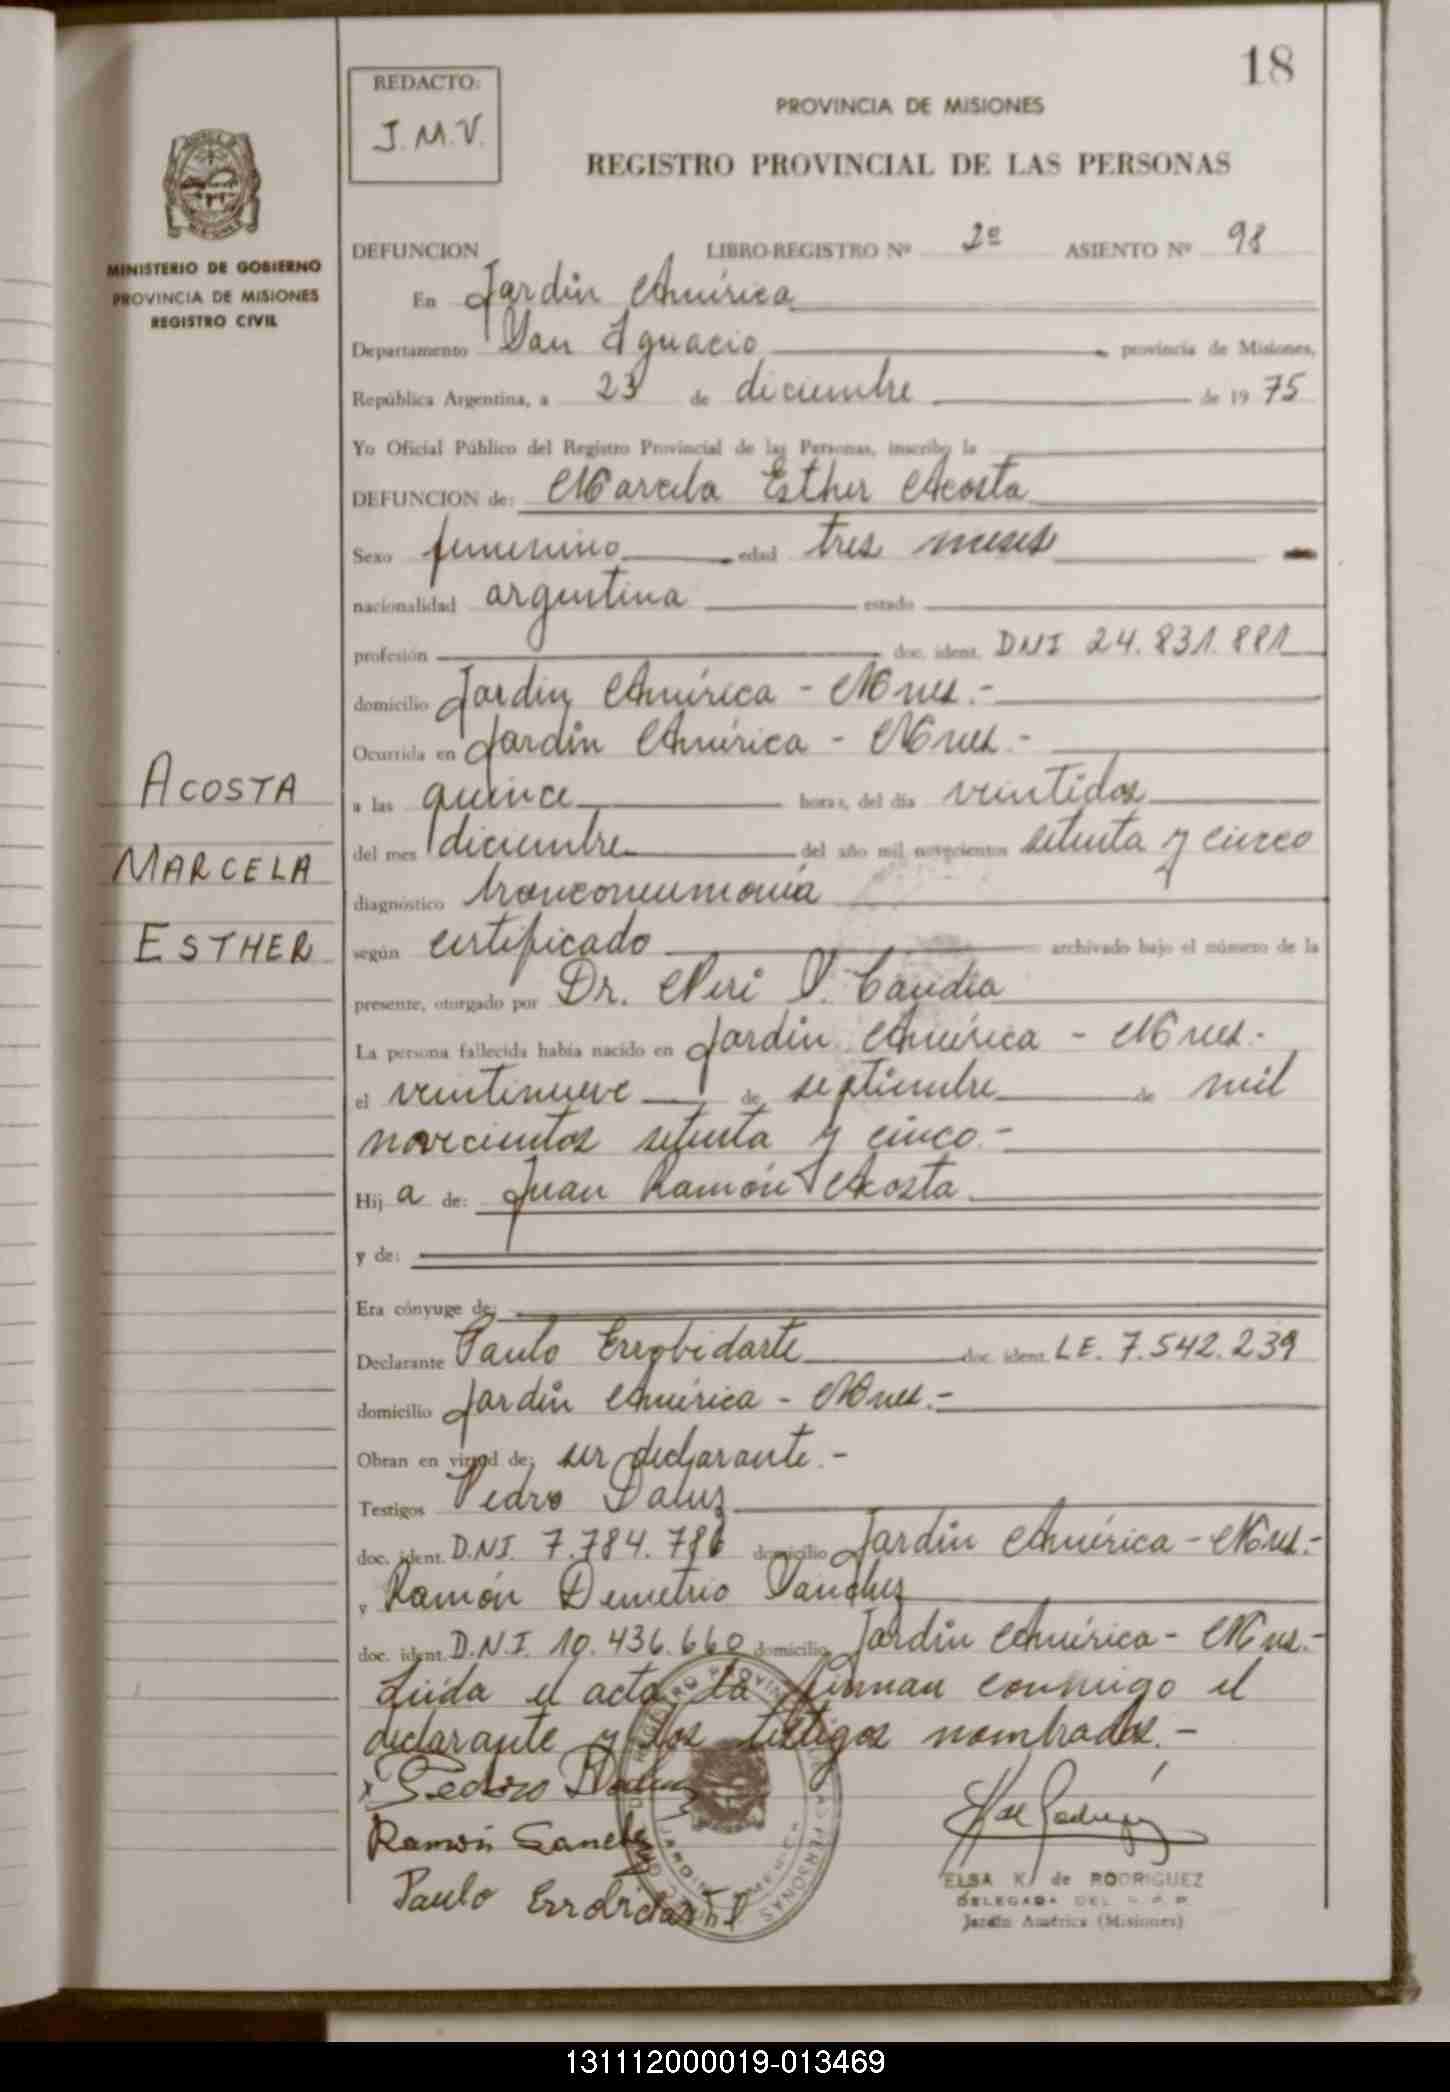 18
REDACTO:
J.M.V.
PROVINCIA DE MISIONES
REGISTRO PROVINCIAL DE LAS PERSONAS
MINISTERIO DE GOBIERNO
PROVINCIA DE MISIONES
REGISTRO CIVIL
DEFUNCION LIBRO-REGISTRO Nº 2º ASIENTO Nº 98
En Jardín América
Departamento San Ignacio provincia de Misiones,
República Argentina, a 23 de diciembre de 1975
Yo Oficial Público del Registro Provincial de las Personas, inscribo la
DEFUNCION de: Marcela Esther Acosta
Sexo femenino edad tres meses
nacionalidad argentina estado
profesión doc. ident. DNI 24.831.881
domicilio Jardín América - Mnes.-
Ocurrida en Jardín América - Mnes.-
ACOSTA
MARCELA
ESTHER
a las quince horas, del día veintidos
del mes diciembre del año mil novecientos setenta y cinco
diagnóstico bronconeumonía
según certificado archivado bajo el número de la
presente, otorgado por Dr. Neri S. Candia
La persona fallecida había nacido en Jardín América - Mnes.-
el veintinueve de septiembre de mil
novecientos setenta y cinco.-
Hij a de: Juan Ramón Acosta
y de:
Era cónyuge de:
Declarante Paulo Errobidarte doc. ident. LE. 7.542.239
domicilio Jardín América - Mnes.-
Obran en virtud de: ser declarante.-
Testigos Pedro Daluz
doc. ident. D.NI. 7.784.786 domicilio Jardín América - Mnes.-
y Ramón Demetrio Sanchez
doc. ident. D.N.I. 10.436.660 domicilio Jardín América - Mnes.-
Leída el acta, la firman conmigo el
declarante y los testigos nombrados.-
Pedro Daluz
Ramón Sanchez
Paulo Errobidarte
ELSA K. de RODRIGUEZ
DELEGADA DEL R.P.P.
Jardín América (Misiones)
131112000019-013469